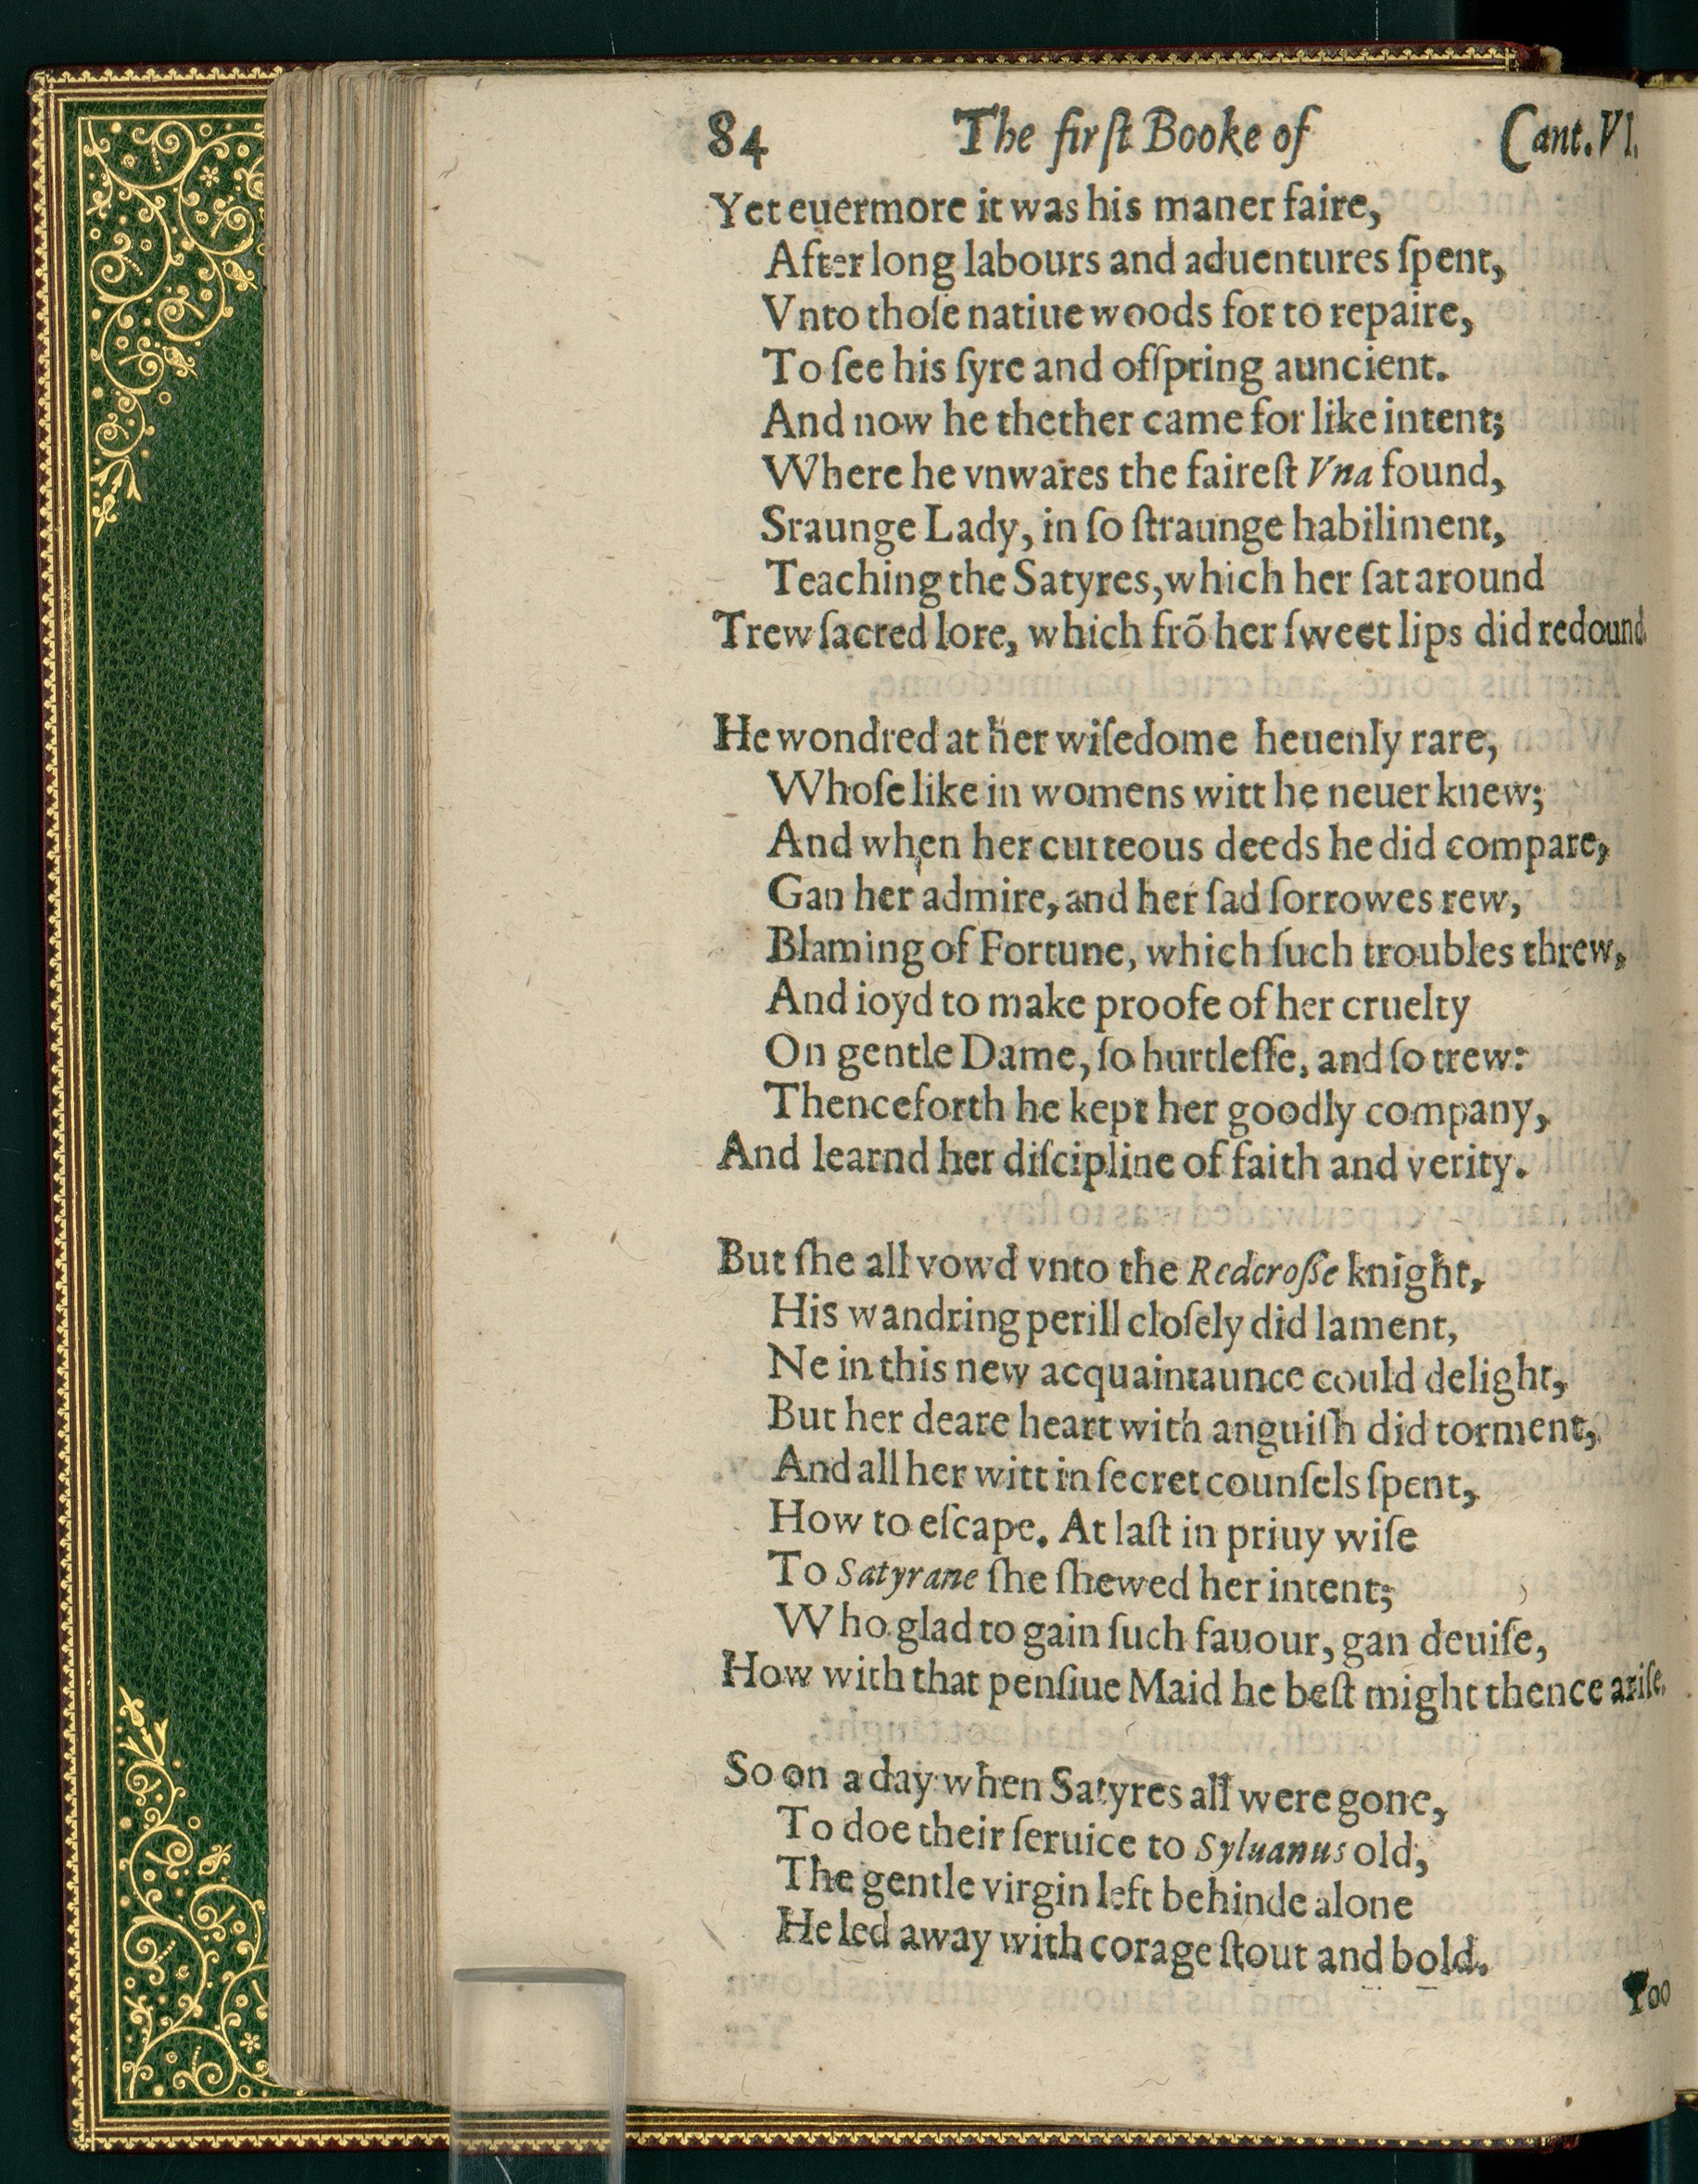 84 The firſt Booke of Cant. VI.
Yet euermore it was his maner faire,
After long labours and aduentures ſpent,
Vnto thoſe natiue woods for to repaire,
To ſee his ſyre and ofſpring auncient.
And now he thether came for like intent;
Where he vnwares the faireſt Vna found,
Sraunge Lady, in ſo ſtraunge habiliment,
Teaching the Satyres, which her ſat around
Trew ſacred lore, which frõ her ſweet lips did redound.
He wondred at her wiſedome heuenly rare,
Whoſe like in womens witt he neuer knew;
And when her curteous deeds he did compare,
Gan her admire, and her ſad ſorrowes rew,
Blaming of Fortune, which ſuch troubles threw,
And ioyd to make proofe of her cruelty
On gentle Dame, ſo hurtleſſe, and ſo trew:
Thenceforth he kept her goodly company,
And learnd her diſcipline of faith and verity.
But ſhe all vowd vnto the Redcroſſe knight,
His wandring perill cloſely did lament,
Ne in this new acquaintaunce could delight,
But her deare heart with anguiſh did torment,
And all her witt in ſecret counſels ſpent,
How to eſcape. At laſt in priuy wiſe
To Satyrane ſhe ſhewed her intent;
Who glad to gain ſuch fauour, gan deuiſe,
How with that penſiue Maid he beſt might thence ariſe.
So on a day when Satyres all were gone,
To doe their ſeruice to Syluanus old,
The gentle virgin left behinde alone
He led away with corage ſtout and bold.
Too